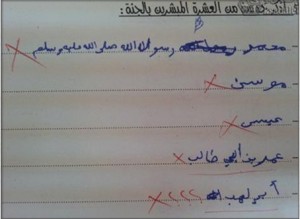 من العشرة المبشرين بالجنة :
محمد رسول الله صلى الله عليه وسلم
موسى
عيسى
عمر بن أبي طالب
أبو لهب ؟؟؟